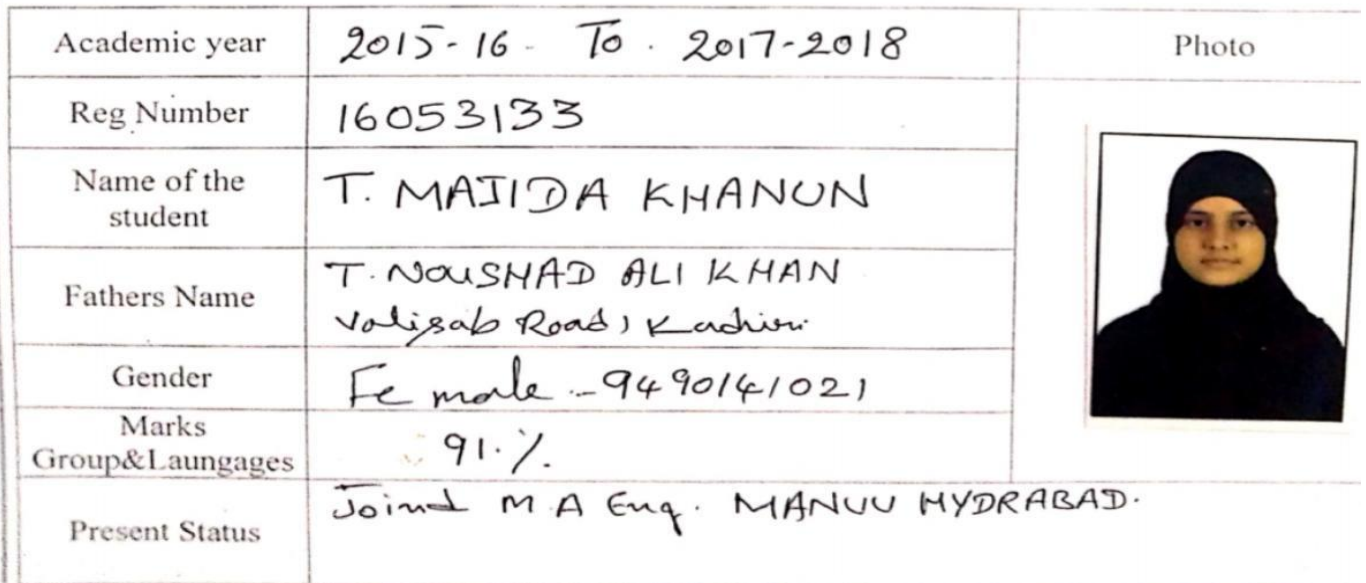 Academic year 2015-16 - To . 2017-2018 Photo
Reg Number 16053133
Name of the
student
T. MAJIDA KHANUN
Fathers Name
T. NOUSHAD ALI KHAN
Valisab Road, Kadiri
Gender Female - 9490141021
Marks
Group&Laungages
91.%
Present Status
Joind M.A Eng. MANUU HYDRABAD.